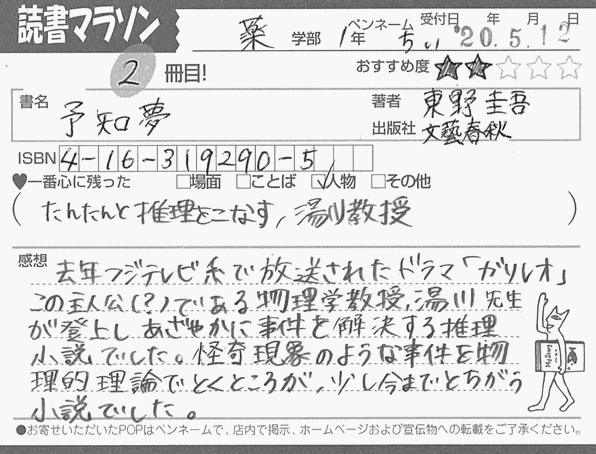 読書マラソン
薬 学部 1年 ペンネーム ちぃ 受付日 '20年5月12日
2 冊目!
おすすめ度 ★★☆☆☆
書名 予知夢
著者 東野圭吾
出版社 文藝春秋
ISBN 4-16-319290-5
♥一番心に残った □場面 □ことば ☑人物 □その他
(たんたんと推理をこなす、湯川教授)
感想 去年フジテレビ系で放送されたドラマ「ガリレオ」
この主人公(?)である物理学教授、湯川先生
が登上しあざやかに事件を解決する推理
小説でした。怪奇現象のような事件を物
理的理論でとくところが、少し今までとちがう
小説でした。
●お寄せいただいたPOPはペンネームで、店内で掲示、ホームページおよび宣伝物への転載をご了承ください。